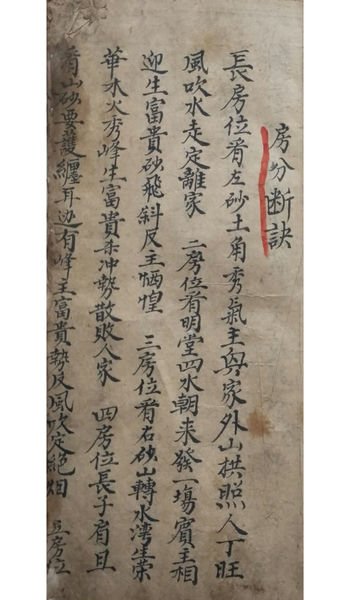 房分断訣
長房位看左砂土角秀氣主興家外山拱照人丁旺
風吹水走定離家 二房位看明堂四水朝来發一場賓主相
迎生富貴砂飛斜反主恓惶 三房位看右砂山轉水湾生荣
華木火秀峰生富貴冲勢散敗人家 四房位長子肩且
看山砂要護纏耳边有峰主富貴勢反風吹定絕烟 五房位